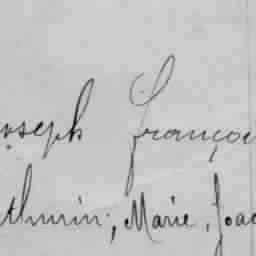 oseph françoi
thurin, Marie, Joac